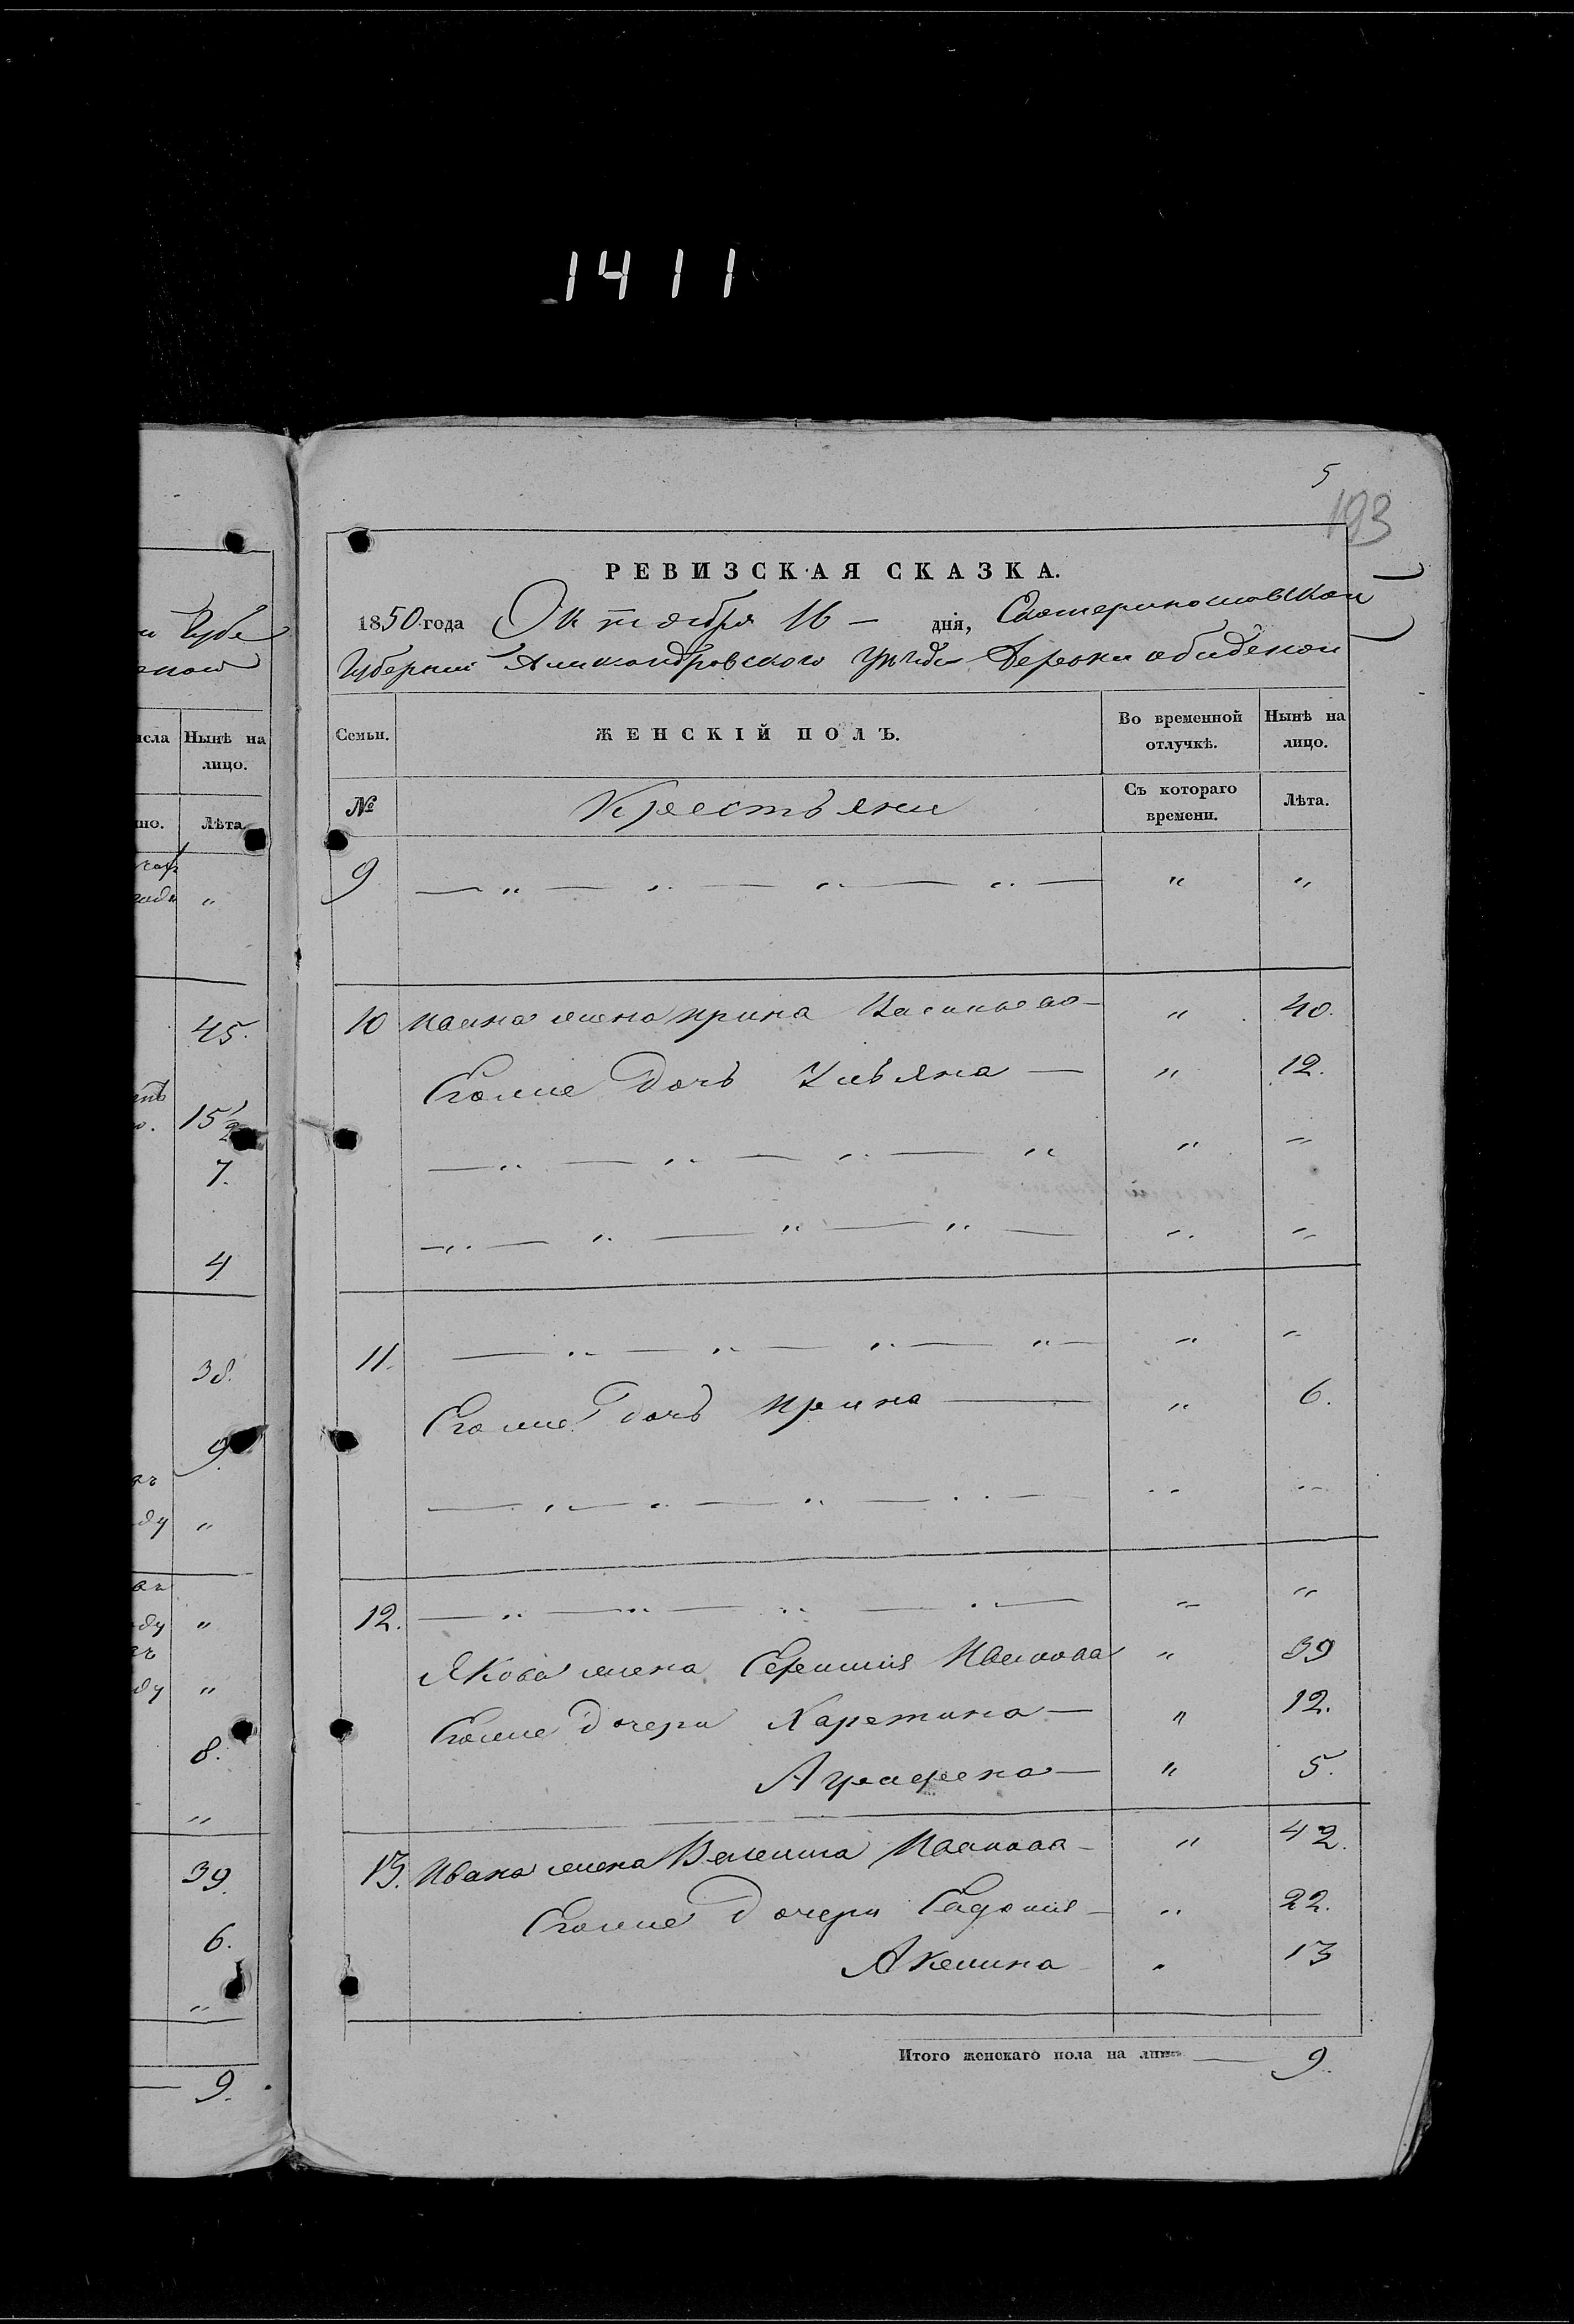 1411
5
193
РЕВИЗСКАЯ СКАЗКА.
1850 года Октября 16 — дня, Екатеринославской
Губернии Александровского уезда Деревни обиденой
Семьи. ЖЕНСКІЙ ПОЛЪ. Во временной отлучкѣ. Нынѣ на лицо.
№ Крестьяни Съ котораго времени. Лѣта.
9 — " — " — " — " — " "
10 жена ирина Васильева — " 40.
Егоже дочь Ульяна — " 12.
— " — " — " — " " "
— " — " — " — " — " "
11. — " — " — " — " — " "
Егоже дочь ирина — " 6.
— " — " — " — " — " "
12. — " — " — " — " — " "
Якова жена Ивановаа " 39
Егоже дочери Харетина — " 12.
Аграфена — " 5.
13. Ивана жена Иванова — " 42.
Егоже дочери — " 22.
Акелина " 13
Итого женскаго пола на лицо — 9.
Губе
исла Нынѣ на лицо.
но. Лѣта.
"
45.
15 1/2
7.
4
38.
9
ду "
ду "
ду "
8.
"
39.
6.
"
— 9.